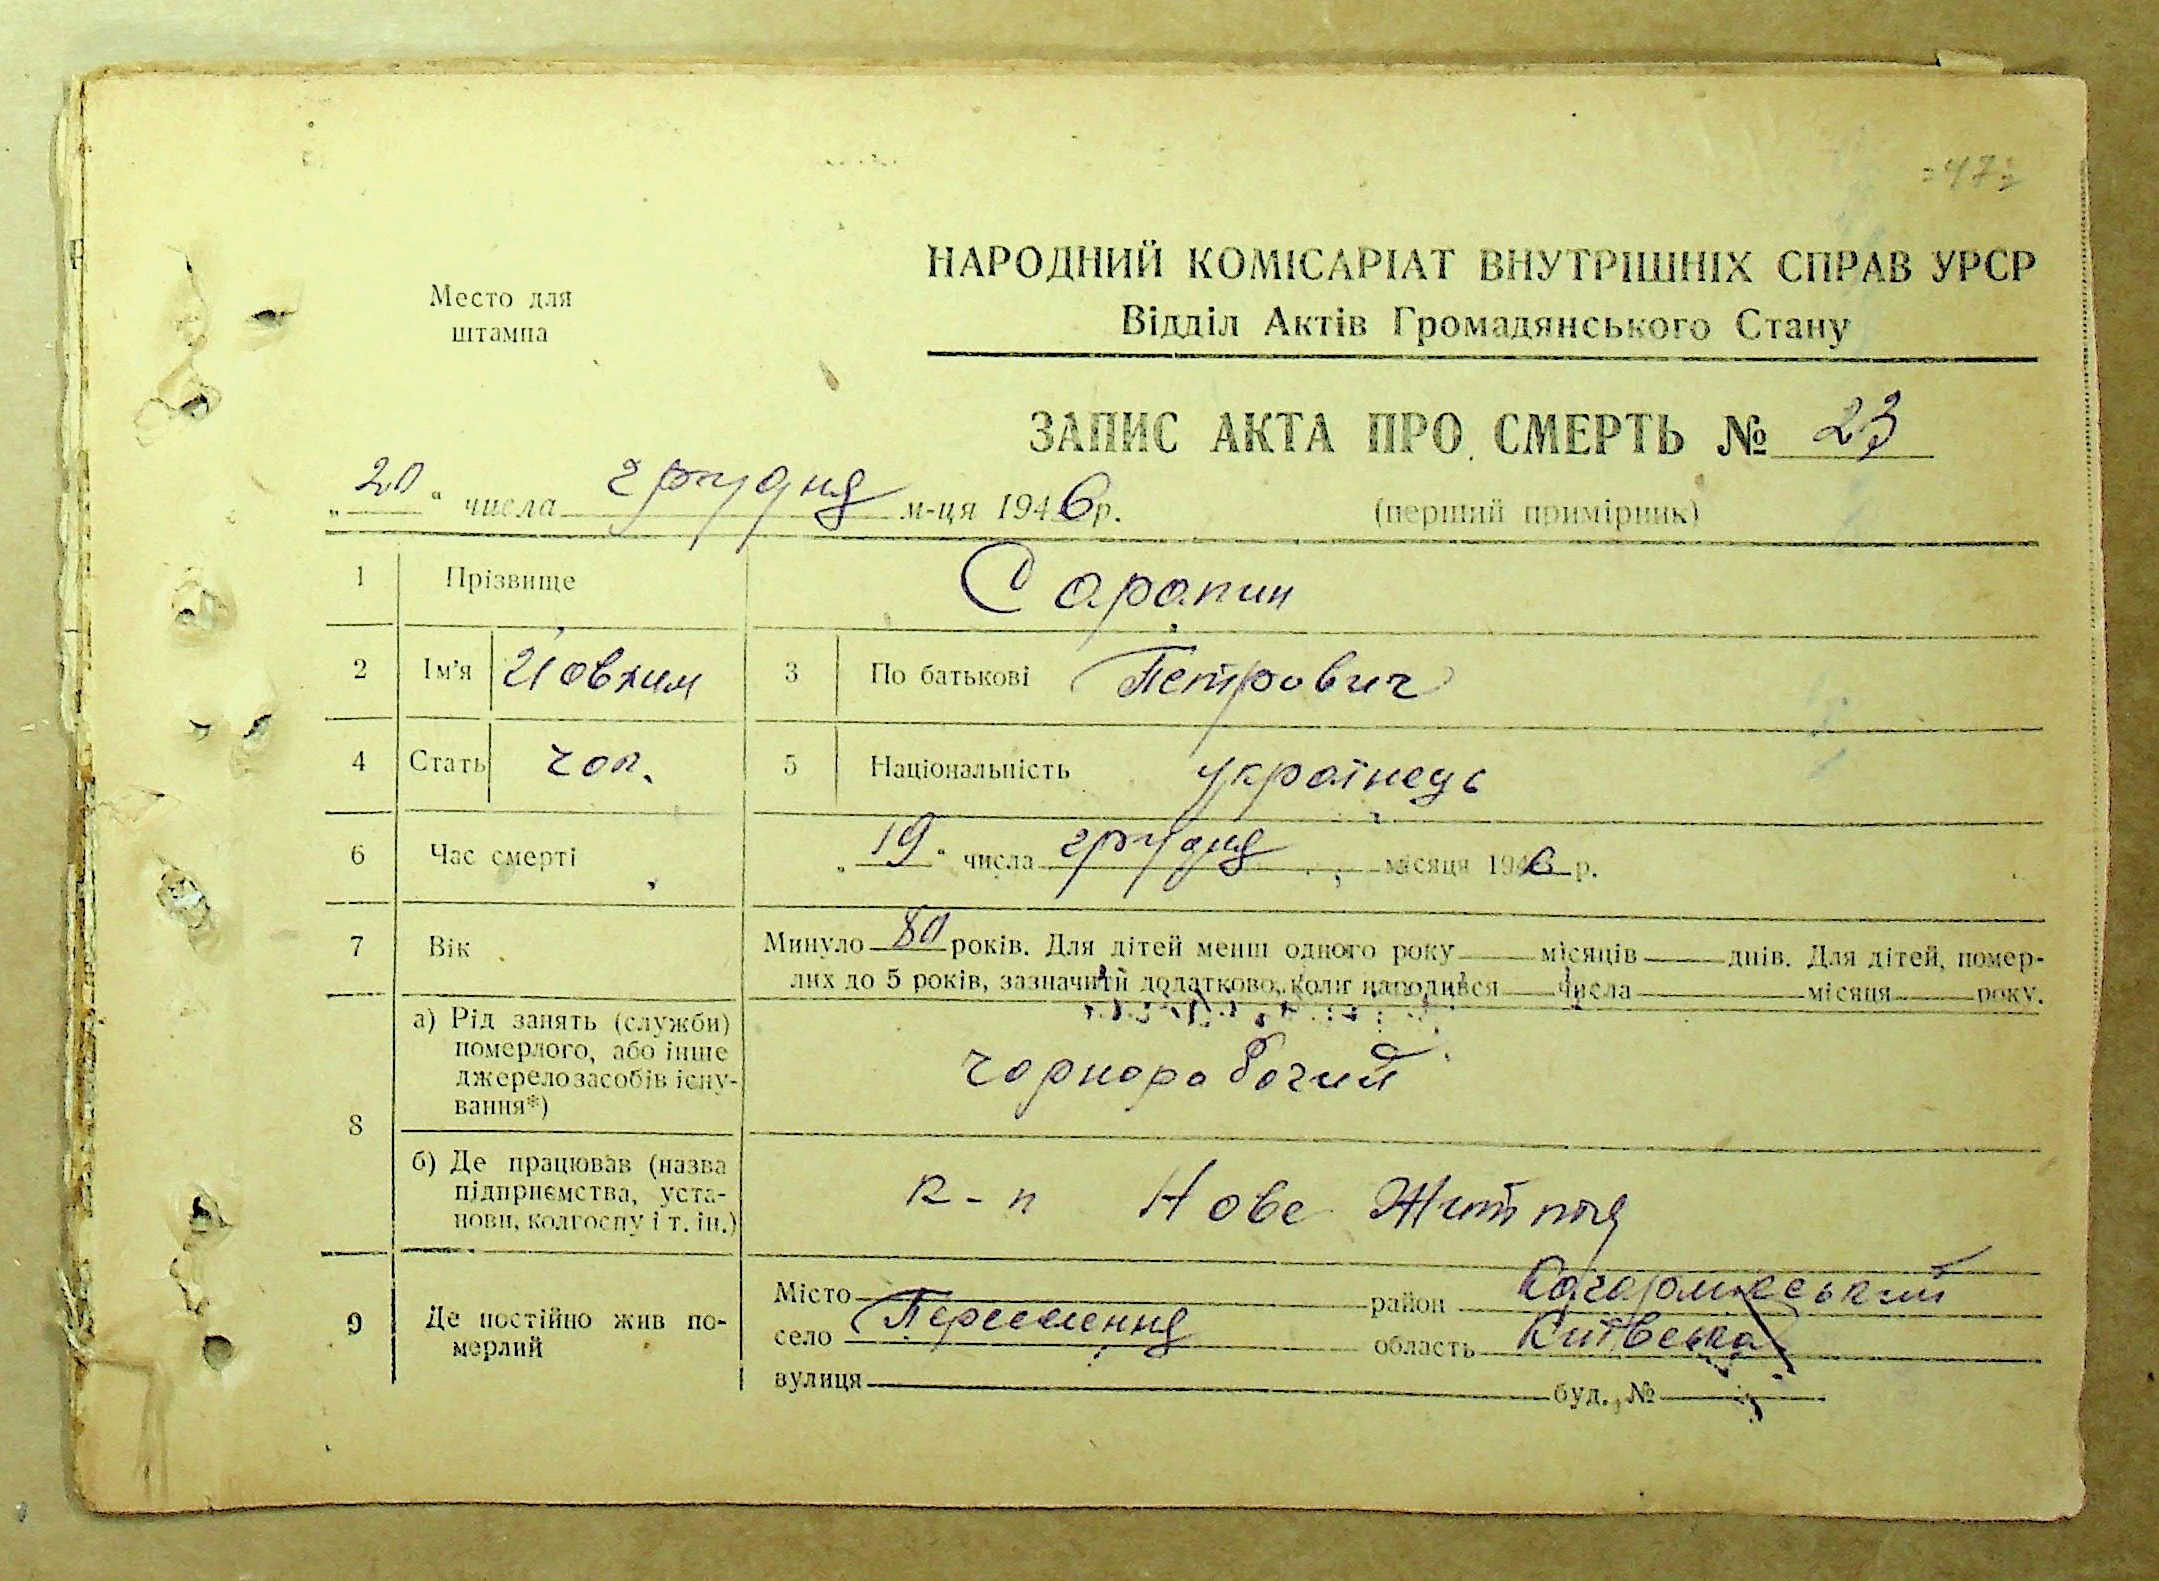 47
НАРОДНИЙ КОМІСАРІАТ ВНУТРІШНІХ СПРАВ УРСР
Место для штампа
Відділ Актів Громадянського Стану
ЗАПИС АКТА ПРО СМЕРТЬ № 23
„20“ числа грудня м-ця 1946 р.
(перший примірник)
1 Прізвище Сарапин
2 Ім'я Йовхим 3 По батькові Петрович
4 Стать чол. 5 Національність українець
6 Час смерті „19“ числа грудня місяця 1946 р.
7 Вік Минуло 80 років. Для дітей менш одного року місяців днів. Для дітей, помер-
лих до 5 років, зазначити додатково, коли народився числа місяця року.
8 а) Рід занять (служби)
померлого, або інше
джерело засобів існу-
вання*)
чорнорабочий
б) Де працював (назва
підприємства, уста-
нови, колгоспу і т. ін.)
к-п Нове Життя
9 Де постійно жив по-
мерлий
Місто район Кагарликський
село Переселення область Київська
вулиця буд. №